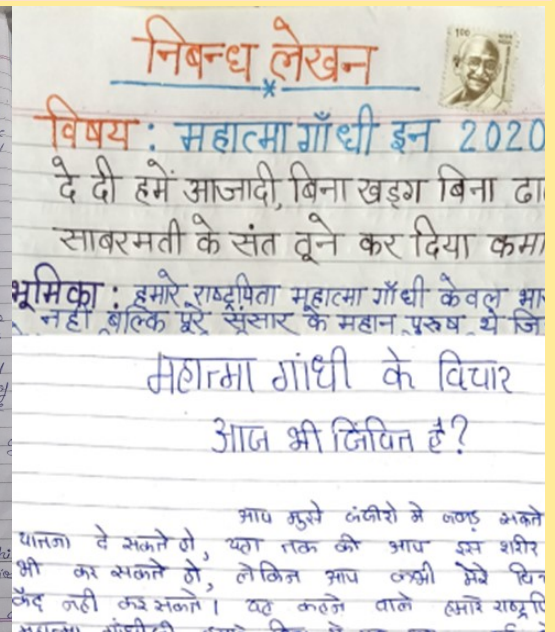 निबन्ध लेखन
विषय : महात्मा गाँधी इन 2020
दे दी हमें आजादी, बिना खड़ग बिना ढा
साबरमती के संत तूने कर दिया कमा
भूमिका : हमारे राष्ट्रपिता महात्मा गाँधी केवल भार
नहीं बल्कि पूरे संसार के महान पुरुष थे जि
महात्मा गांधी के विचार
आज भी जिवित है?
आप मुझे जंजीरो मे जकड़ सकते
यातना दे सकते हो, यहा तक की आप इस शरीर
भी कर सकते हो, लेकिन आप कभी मेरे
कैद नही कर सकते। यह कहने वाले हमारे राष्ट्रपि